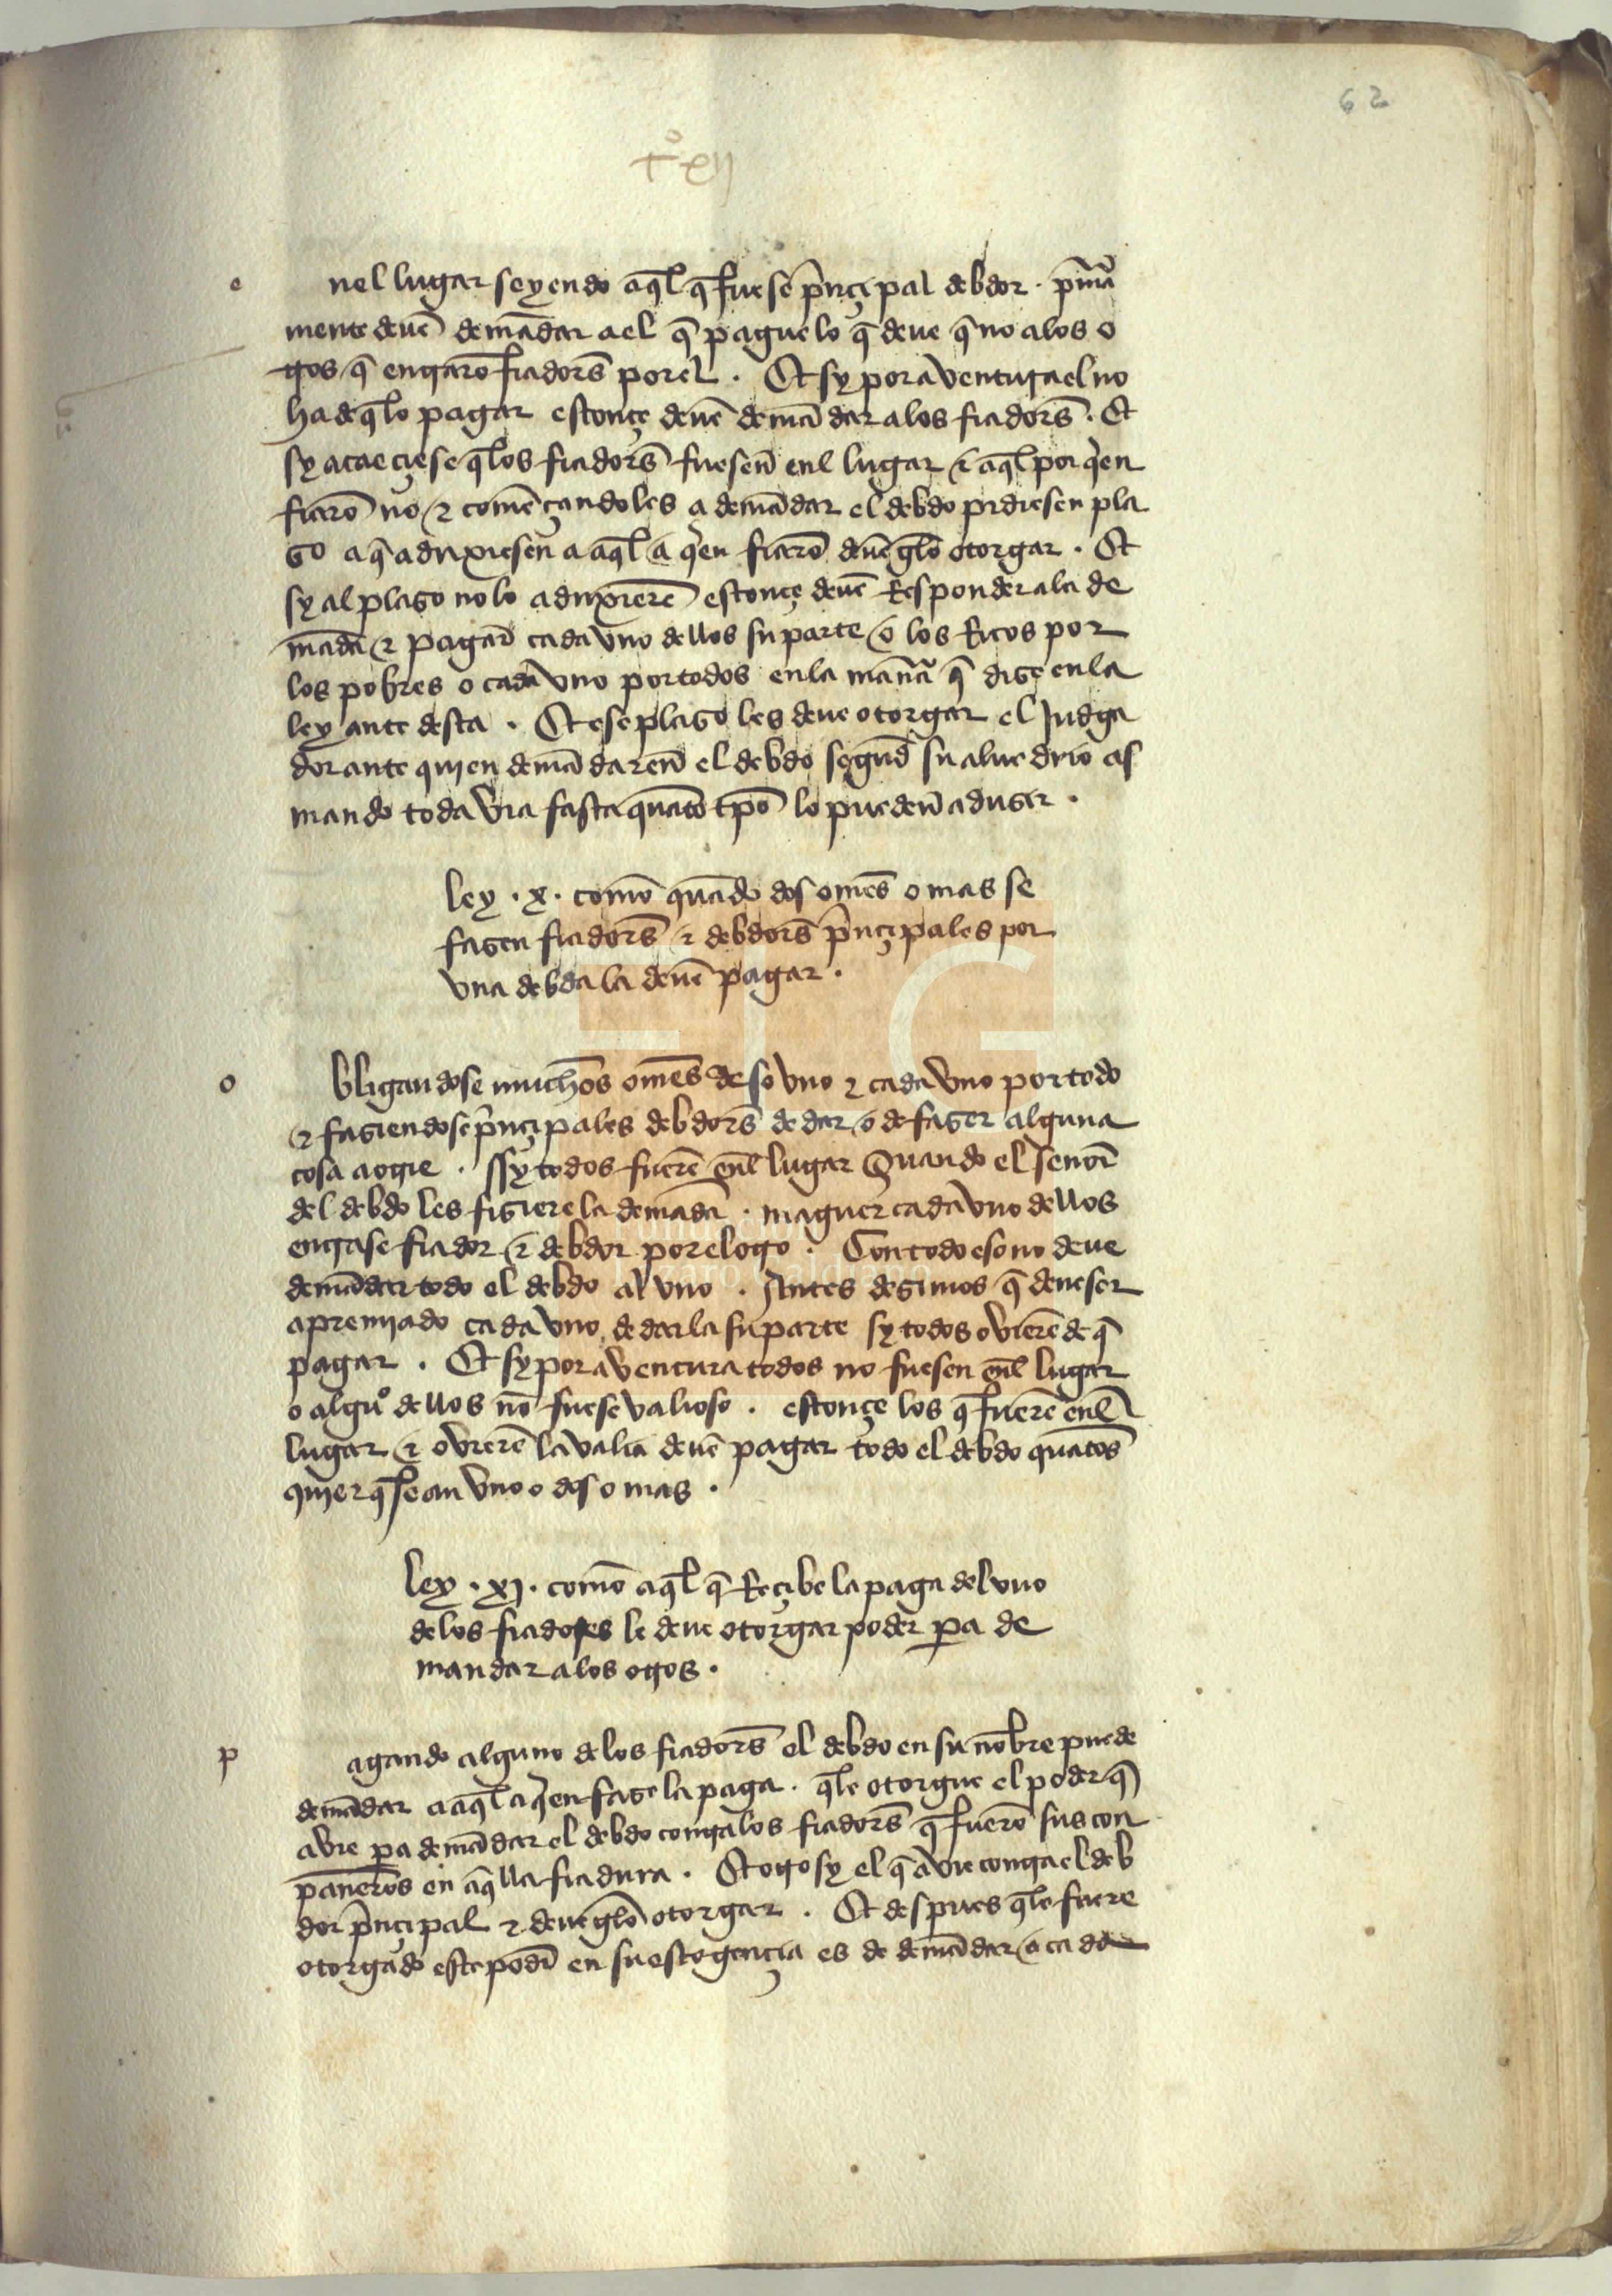 62
tº xij
e nel lugar seyendo aql̃ q̃ fuese p̃nçipal debdor . p̃mã
mente deuẽ demãdar a el q̃ pague lo q̃ deue q̃ no a los o
tros q̃ entrarõ fiadors̃ por el . Et sy por aventura el no
ha de q̃ lo pagar estonçe deuẽ demãdar a los fiadors̃ . Et
sy acaeçiese q̃ los fiadors̃ fuesen̄ enl lugar & aql̃ por qien
fiarõ no & comẽçandoles a demãdar el debdo pidiesen pla
zo a q̃ aduxiesen a aql̃ a qien fiarõ deuẽ gelo otorgar . Et
sy al plazo no lo aduxierẽ estonçe deuẽ Responder a la de
mãda & pagar̄ cada vno dellos su parte o los Ricos por
los pobres o cada vno por todos en la manã q̃ dize en la
ley ante desta . Et ese plazo les deue otorgar el judga
dor ante quien demãdaren̄ el debdo segũd su aluedrio as
mando toda via fasta quãto tp̃o lo pueden̄ aduzir .
ley . x . comõ quãdo dos om̃es o mas se
fazen fiadors̃ & debdors̃ p̃nçipales por
vna debda la deuẽ pagar .
o bligandose muchos̃ om̃es de so vno & cada vno por todo
& faziendose p̃nçipales debdors̃ de dar o de fazer alguna
cosa a otrie . ssy todos fuerẽ enl̃ lugar Quando el señor̃
del debdo les fiziere la demãda . maguer cada vno dellos
entrase fiador & debdor por el otro . Con todo eso no deue
demãdar todo el debdo al vno . Antes dezimos q̃ deue ser
apremiado cada vno de dar la su parte sy todos ovierẽ de q̃
pagar . Et sy por aventura todos no fuesen enl̃ lugar
o alguº dellos nõ fuese valioso . estonçe los q̃ fuerẽ enl̃
lugar & ovierẽ la valia deuẽ pagar todo el debdo quãtos
quier q̃ sean vno o dos o mas .
ley . xj . comõ aql̃ q̃ Reçibe la paga del vno
de los fiadores le deue otorgar poder pa de
mandar a los otros .
p agando alguno de los fiadors̃ el debdo en su nõbre puede
demãdar a aql̃ a qien faze la paga . q̃ le otorgue el poder q̃
avie pa demãdar el debdo contra los fiadors̃ q̃ fuerõ sus con
paneros̃ en aq̃lla fiadura . Et otro sy el q̃ avie contra el deb
dor p̃nçipal & deue gelo otorgar . Et despues q̃ le fuere
otorgado este podr̃ en su escogençia es de demãdar a cada